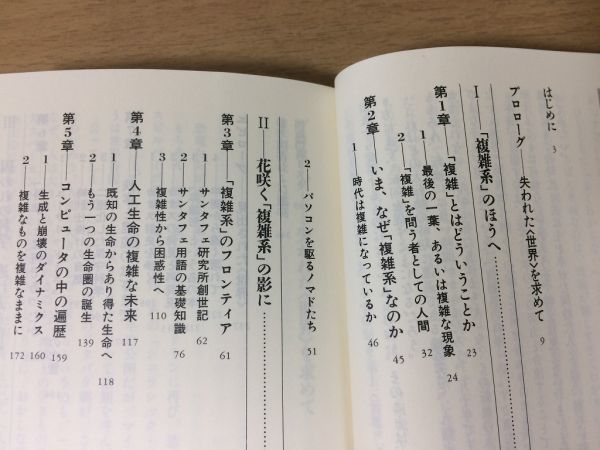 はじめに 3
プロローグ——失われた〈世界〉を求めて 9
I——「複雑系」のほうへ
第1章——「複雑」とはどういうことか 23
1 最後の一葉、あるいは複雑な現象 24
2 「複雑」を問う者としての人間 32
第2章——いま、なぜ「複雑系」なのか 45
1 時代は複雑になっているか 46
2 パソコンを駆るノマドたち 51
II——花咲く「複雑系」の影に
第3章——「複雑系」のフロンティア 61
1 サンタフェ研究所創世記 62
2 サンタフェ用語の基礎知識 76
3 複雑性から困惑性へ 110
第4章——人工生命の複雑な未来 117
1 既知の生命からあり得た生命へ 118
2 もう一つの生命圏の誕生 139
第5章——コンピュータの中の遍歴 159
1 生成と崩壊のダイナミクス 160
2 複雑なものを複雑なままに 172